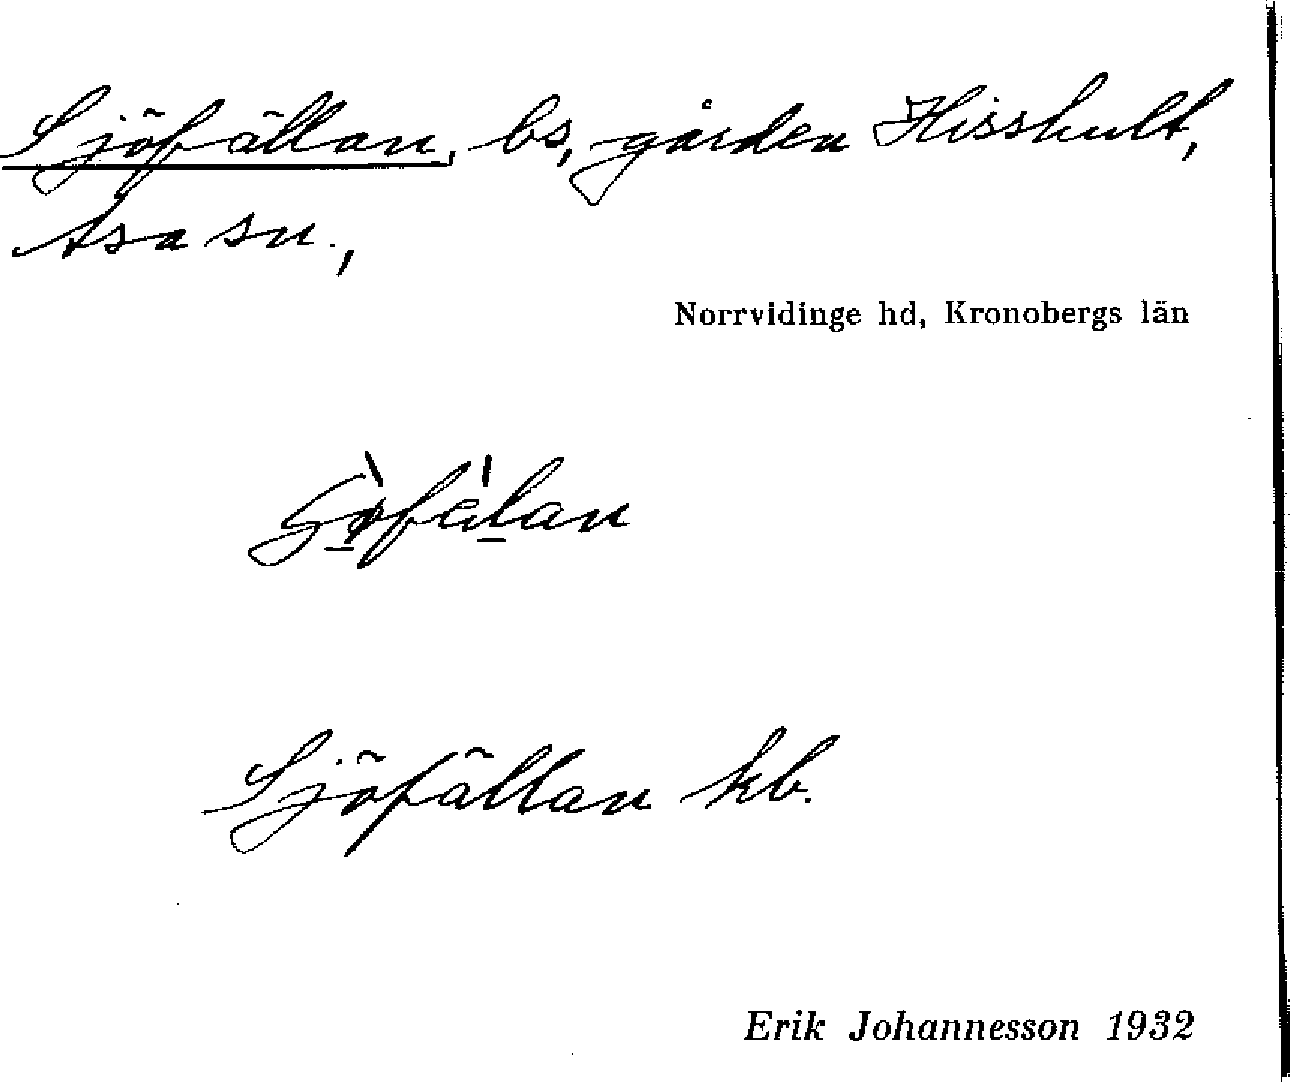 Sjöfällan, bs, gården Hisshult,
Asa sn.,
Norrvidinge hd, Kronobergs län
Sjöfällan kb.
Erik Johannesson 1932